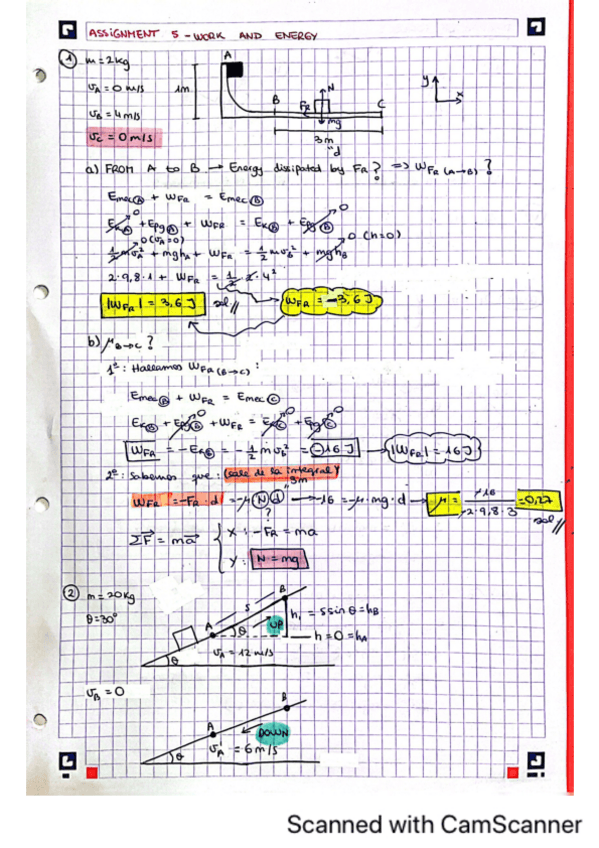 ASSIGNMENT 5 - WORK AND ENERGY
① m = 2kg
v_A = 0 m/s
v_B = 4 m/s
v_C = 0 m/s
A
1m
B
F_R
N
mg
C
3m
"d
y
x
a) FROM A to B → Energy dissipated by F_R? => W_FR (A→B)?
Emec Ⓐ + W_FR = Emec Ⓑ
E_KⒶ + EpgⒶ + W_FR = E_KⒷ + EpgⒷ
0
0
0 (v_A=0)
0 (h=0)
½ m v_A² + mgh_A + W_FR = ½ m v_B² + mgh_B
2·9,8·1 + W_FR = ½·2·4²
|W_FR| = 3,6 J sol//
W_FR = -3,6 J
b) μ_B→C?
1º: Hallamos W_FR (B→C):
Emec Ⓑ + W_FR = Emec Ⓒ
E_KⒷ + EpgⒷ + W_FR = E_KⒸ + EpgⒸ
0
0
0
W_FR = -E_KⒷ = -½ m v_B² = -16 J → |W_FR| = 16 J
2º: Sabemos que: (sale de la integral)
3m
W_FR = -F_R · d = -μ N d → -16 = -μ·mg·d → μ = -16 / -2·9,8·3 = 0,27
?
sol//
ΣF = ma
X: -F_R = ma
Y: N = mg
② m = 20kg
θ = 30°
A
s
B
θ
UP
h₁ = s sin θ = h_B
h = 0 = h_A
v_A = 12 m/s
θ
v_B = 0
A
B
DOWN
v_A' = 6 m/s
θ
Scanned with CamScanner